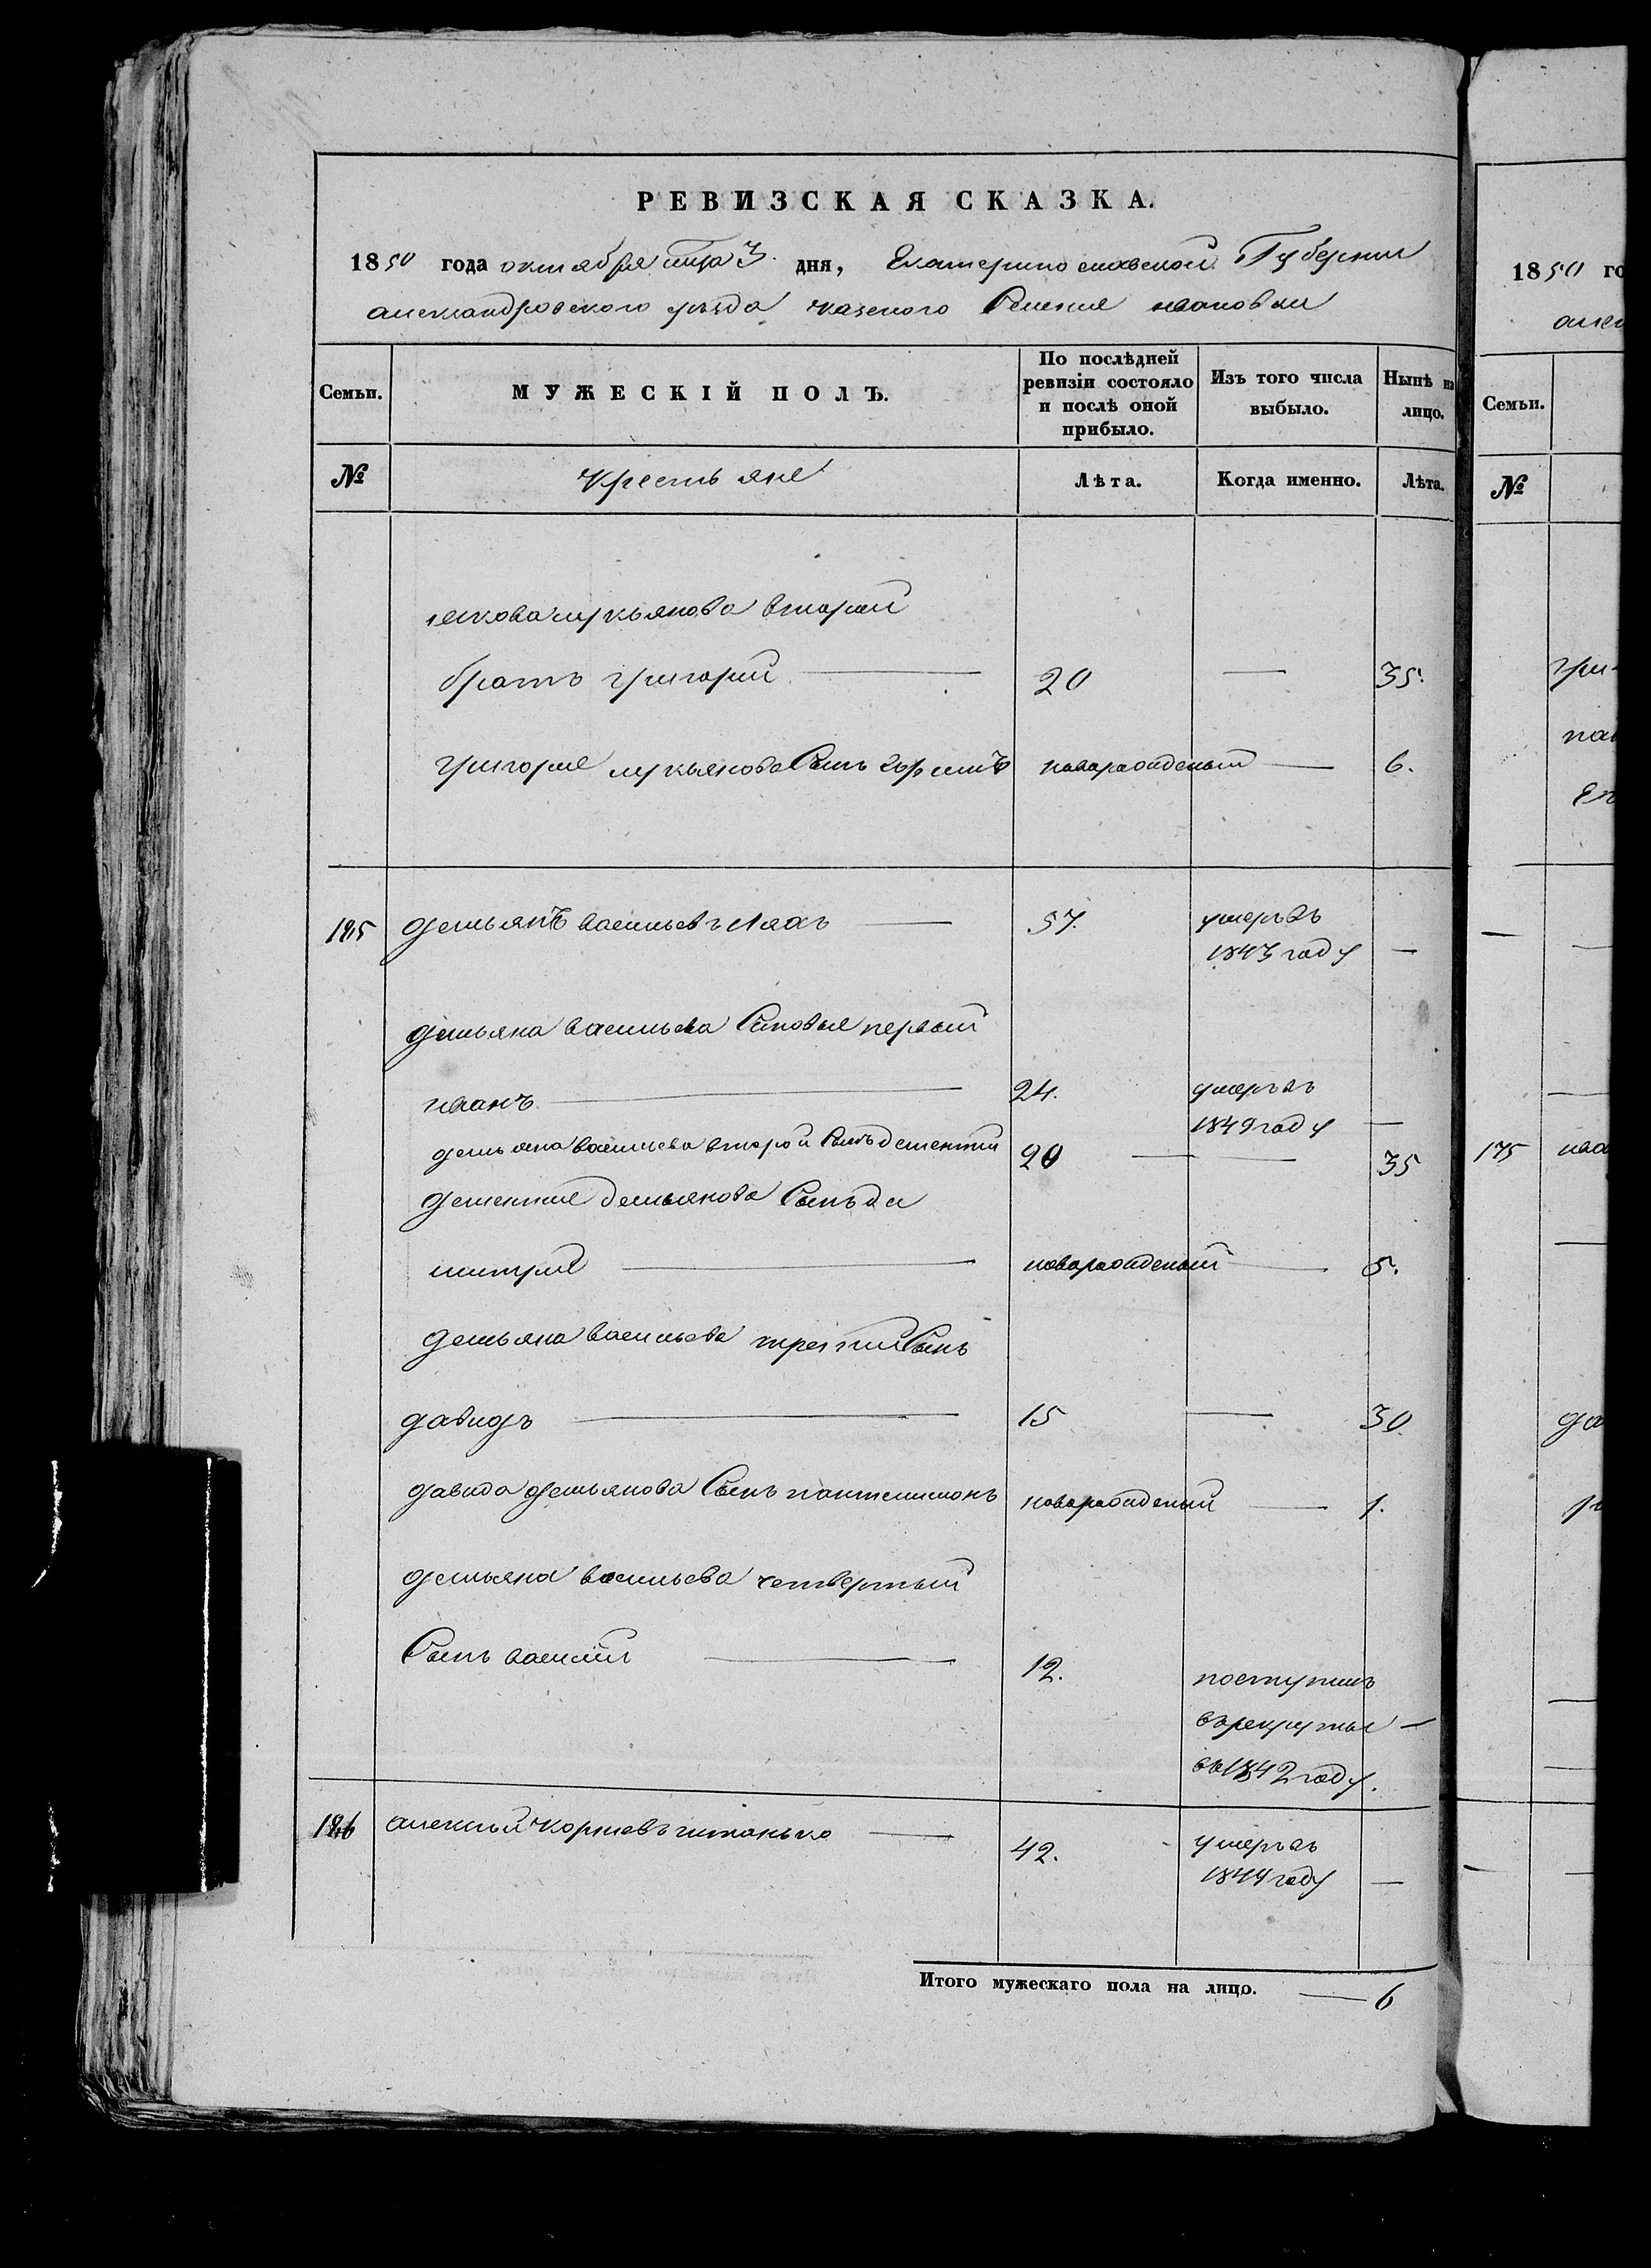 РЕВИЗСКАЯ СКАЗКА.
1850 года октября мца 3. дня, Екатеринославской Губернии
александровского уезда казеного Селения ивановки
Семьи. МУЖЕСКІЙ ПОЛЪ. По послѣдней ревизіи состояло и послѣ оной прибыло. Изъ того числа выбыло. Нынѣ на лицо.
№ Крестьяне Лѣта. Когда именно. Лѣта.
лукьянова вторый
братъ григорий 20 35.
григория лукьянова Сынъ новарожденый 6.
125 демьянъ васильевъ ляхъ 57. умеръ въ
1843 году
демьяна васильева Сыновья первый
иванъ 24. умеръ въ
1849 году
демьяна васильева второй Сынъ дементий 20 35
дементия демьянова Сынъ ди
митрий новарожденый 5.
демьяна васильева третий Сынъ
давидъ 15 30.
давида демьянова Сынъ пантелимонъ новарожденый 1.
демьяна васильева четвертый
Сынъ василий 12. поступилъ
въ рекруты
въ 1842 году.
126 алексей корнѣевъ 42. умеръ въ
1844 году
Итого мужескаго пола на лицо. 6
1850 го
Семьи.
№
175